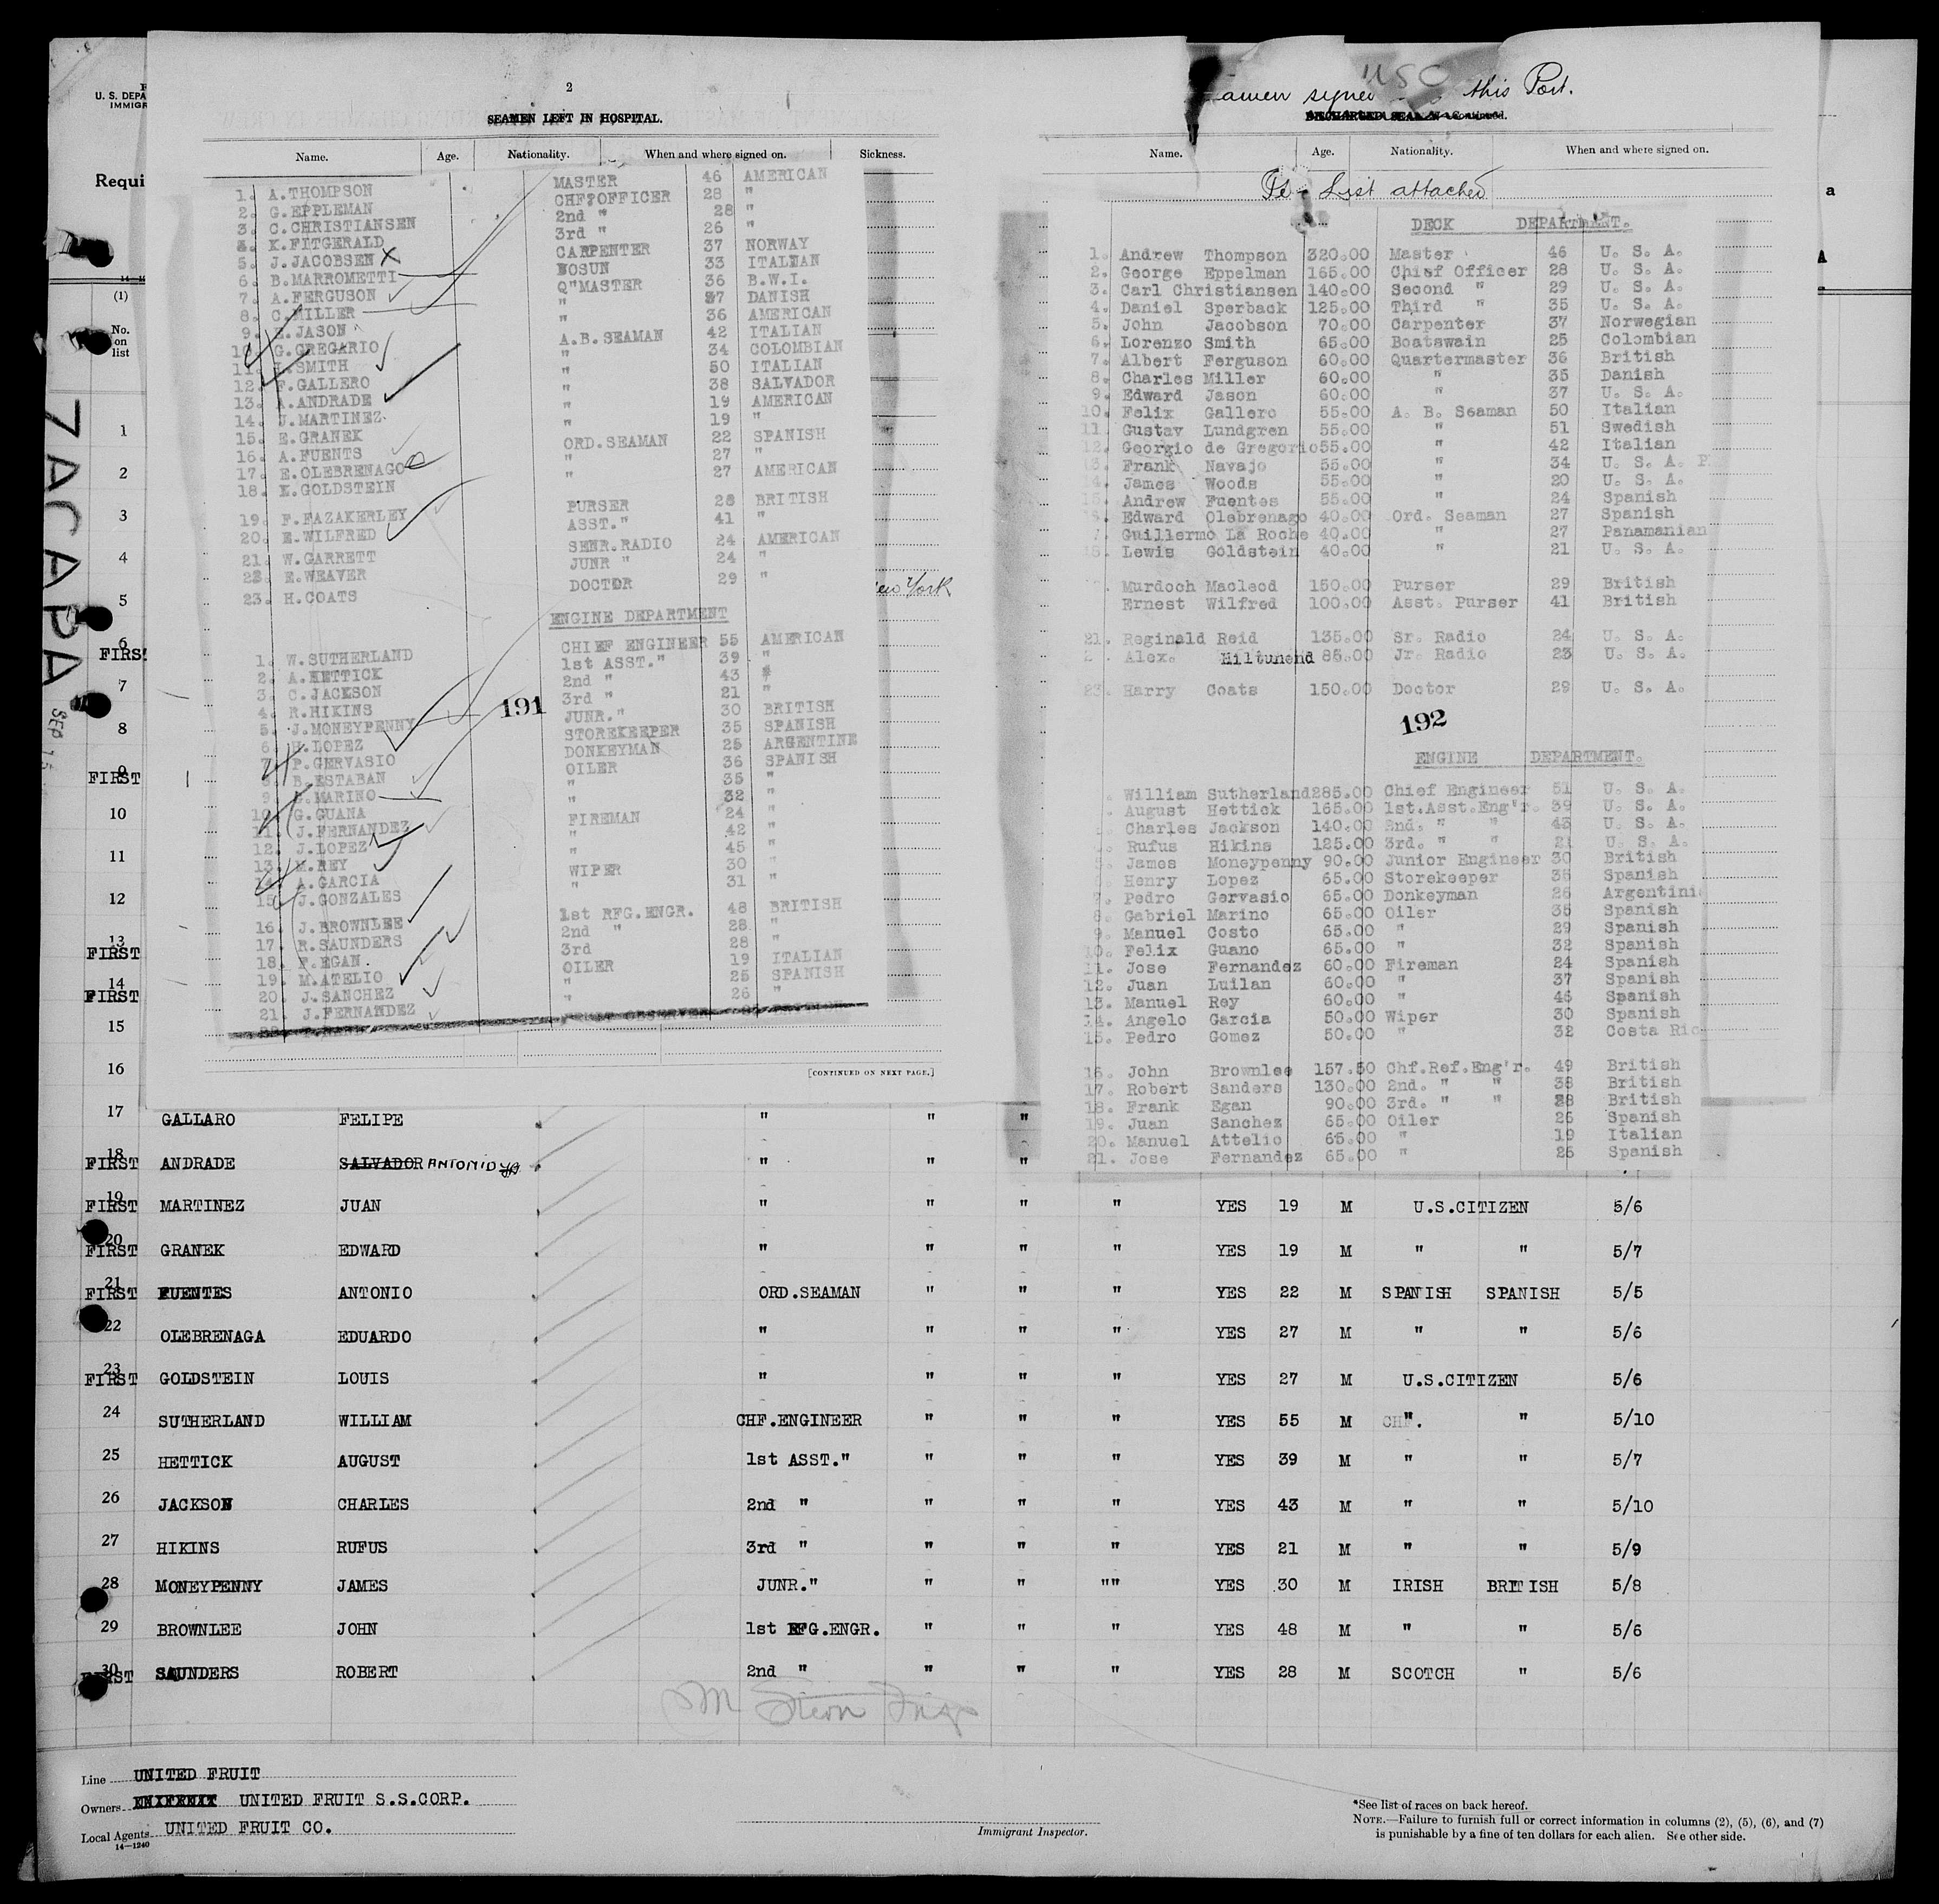 U. S. DEPA
IMMIGR
Requi
(1)
No.
on
list
ZACAPA
2
SEAMEN LEFT IN HOSPITAL.
Name. Age. Nationality. When and where signed on. Sickness.
1. A.THOMPSON MASTER 46 AMERICAN
2. G.EPPLEMAN CHF?OFFICER 28 "
3. C.CHRISTIANSEN 2nd " 28 "
4. K.FITGERALD 3rd " 26 "
5. J.JACOBSEN X CARPENTER 37 NORWAY
6. B.MARROMETTI BOSUN 33 ITALNAN
7. A.FERGUSON Q"MASTER 36 B.W.I.
8. C.MILLER " 37 DANISH
9. E.JASON " 36 AMERICAN
10. G.GREGARIO A.B.SEAMAN 42 ITALIAN
11. L.SMITH " 34 COLOMBIAN
12. F.GALLERO " 50 ITALIAN
13. A.ANDRADE " 38 SALVADOR
14. J.MARTINEZ " 19 AMERICAN
15. E.GRANEK " 19 "
16. A.FUENTS ORD.SEAMAN 22 SPANISH
17. E.OLEBRENAGO " 27 "
18. K.GOLDSTEIN " 27 AMERICAN
19. F.FAZAKERLEY PURSER 28 BRITISH
20. E.WILFRED ASST." 41 "
21. W.GARRETT SENR.RADIO 24 AMERICAN
22. E.WEAVER JUNR " 24 "
23. H.COATS DOCTOR 29 "
ew York
ENGINE DEPARTMENT
1. W.SUTHERLAND CHIEF ENGINEER 55 AMERICAN
2. A.HETTICK 1st ASST." 39 "
3. C.JACKSON 2nd " 43 "
4. R.HIKINS 3rd " 21 "
5. J.MONEYPENNY JUNR." 30 BRITISH
6. H.LOPEZ STOREKEEPER 35 SPANISH
7. P.GERVASIO DONKEYMAN 25 ARGENTINE
8. B.ESTABAN OILER 36 SPANISH
9. G.MARINO " 35 "
10. G.GUANA " 32 "
11. J.FERNANDEZ FIREMAN 24 "
12. J.LOPEZ " 42 "
13. M.REY " 45 "
14. A.GARCIA WIPER 30 "
15. J.GONZALES " 31 "
16. J.BROWNLEE 1st RFG.ENGR. 48 BRITISH
17. R.SAUNDERS 2nd " 28 "
18. F.EGAN. 3rd 28 "
19. M.ATELIO OILER 19 ITALIAN
20. J.SANCHEZ " 25 SPANISH
21. J.FERNANDEZ " 26 "
191
[CONTINUED ON NEXT PAGE.]
USC
eamen signed this Port.
DISCHARGED SEAMEN—Continued.
Name. Age. Nationality. When and where signed on.
List attached
DECK DEPARTMENT.
1. Andrew Thompson 320.00 Master 46 U. S. A.
2. George Eppelman 165.00 Chief Officer 28 U. S. A.
3. Carl Christiansen 140.00 Second " 29 U. S. A.
4. Daniel Sperback 125.00 Third " 35 U. S. A.
5. John Jacobson 70.00 Carpenter 37 Norwegian
6. Lorenzo Smith 65.00 Boatswain 25 Colombian
7. Albert Ferguson 60.00 Quartermaster 36 British
8. Charles Miller 60.00 " 35 Danish
9. Edward Jason 60.00 " 37 U. S. A.
10. Felix Gallero 55.00 A. B. Seaman 50 Italian
11. Gustav Lundgren 55.00 " 51 Swedish
12. Georgio de Gregorio 55.00 " 42 Italian
13. Frank Navajo 55.00 " 34 U. S. A. P
14. James Woods 55.00 " 20 U. S. A.
15. Andrew Fuentes 55.00 " 24 Spanish
Edward Olebrenago 40.00 Ord. Seaman 27 Spanish
7. Guillermo La Roche 40.00 " 27 Panamanian
18. Lewis Goldstein 40.00 " 21 U. S. A.
Murdoch Macleod 150.00 Purser 29 British
Ernest Wilfred 100.00 Asst. Purser 41 British
21. Reginald Reid 135.00 Sr. Radio 24 U. S. A.
2 . Alex. Hiltunend 85.00 Jr. Radio 23 U. S. A.
23. Harry Coats 150.00 Doctor 29 U. S. A.
192
ENGINE DEPARTMENT.
. William Sutherland 285.00 Chief Engineer 51 U. S. A.
. August Hettick 165.00 1st.Asst.Eng'r. 39 U. S. A.
Charles Jackson 140.00 2nd. " " 43 U. S. A.
. Rufus Hikins 125.00 3rd. " " 21 U. S. A.
5. James Moneypenny 90.00 Junior Engineer 30 British
Henry Lopez 65.00 Storekeeper 35 Spanish
7. Pedro Gervasio 65.00 Donkeyman 26 Argentini
8. Gabriel Marino 65.00 Oiler 35 Spanish
9. Manuel Costo 65.00 " 29 Spanish
10. Felix Guano 65.00 " 32 Spanish
11. Jose Fernandez 60.00 Fireman 24 Spanish
12. Juan Luilan 60.00 " 37 Spanish
13. Manuel Rey 60.00 " 46 Spanish
14. Angelo Garcia 50.00 Wiper 30 Spanish
15. Pedro Gomez 50.00 " 32 Costa Ric
16. John Brownlee 157.50 Chf.Ref.Eng'r. 49 British
17. Robert Sanders 130.00 2nd. " " 38 British
18. Frank Egan 90.00 3rd. " " 28 British
19. Juan Sanchez 65.00 Oiler 26 Spanish
20. Manuel Attelio 65.00 " 19 Italian
21. Jose Fernandez 65.00 " 25 Spanish
a
A
1
2
3
4
5
6 FIRST
7
8
9 FIRST
10
11
12
13 FIRST
14 FIRST
15
16
17 GALLARO FELIPE " " "
18 FIRST ANDRADE SALVADOR ANTONIO " " "
19 FIRST MARTINEZ JUAN " " " " YES 19 M U.S.CITIZEN 5/6
20 FIRST GRANEK EDWARD " " " " YES 19 M " " 5/7
21 FIRST FUENTES ANTONIO ORD.SEAMAN " " " YES 22 M SPANISH SPANISH 5/5
22 OLEBRENAGA EDUARDO " " " " YES 27 M " " 5/6
23 FIRST GOLDSTEIN LOUIS " " " " YES 27 M U.S.CITIZEN 5/6
24 SUTHERLAND WILLIAM CHF.ENGINEER " " " YES 55 M " " 5/10
25 HETTICK AUGUST 1st ASST." " " " YES 39 M " " 5/7
26 JACKSON CHARLES 2nd " " " " YES 43 M " " 5/10
27 HIKINS RUFUS 3rd " " " " YES 21 M " " 5/9
28 MONEYPENNY JAMES JUNR." " " "" YES 30 M IRISH BRITISH 5/8
29 BROWNLEE JOHN 1st RFG.ENGR. " " " YES 48 M " " 5/6
30 FIRST SAUNDERS ROBERT 2nd " " " " YES 28 M SCOTCH " 5/6
Line UNITED FRUIT
Owners UNITED FRUIT S.S.CORP.
Local Agents UNITED FRUIT CO.
14—1240
Immigrant Inspector.
*See list of races on back hereof.
NOTE.—Failure to furnish full or correct information in columns (2), (5), (6), and (7)
is punishable by a fine of ten dollars for each alien. See other side.